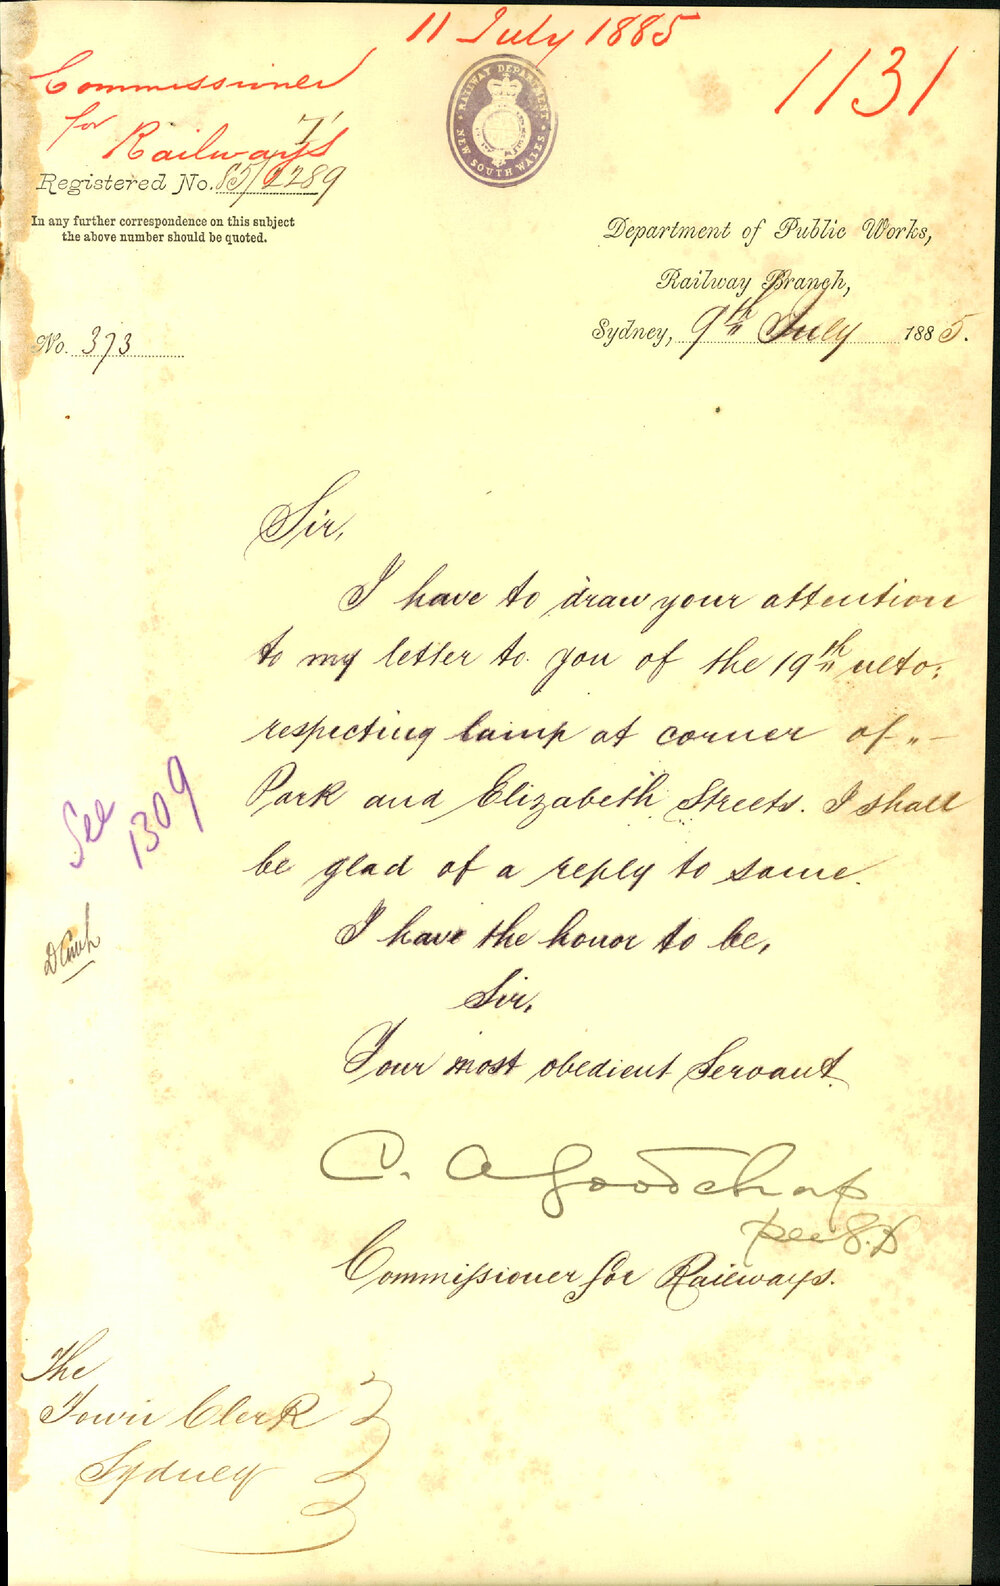 11 July 1885
Commissioner
for
Railways
1131
RAILWAY DEPARTMENT
NEW SOUTH WALES
Registered No. 85/7289
In any further correspondence on this subject
the above number should be quoted.
Department of Public Works,
Railway Branch,
Sydney, 9th July 1885.
No. 373
Sir,
I have to draw your attention
to my letter to you of the 19th ulto:
respecting lamp at corner of
Park and Elizabeth Streets. I shall
be glad of a reply to same.
See
1309
I have the honor to be,
Sir,
Your most obedient Servant
C. A Goodchap
per
Commissioner for Railways.
The
Town Clerk
Sydney